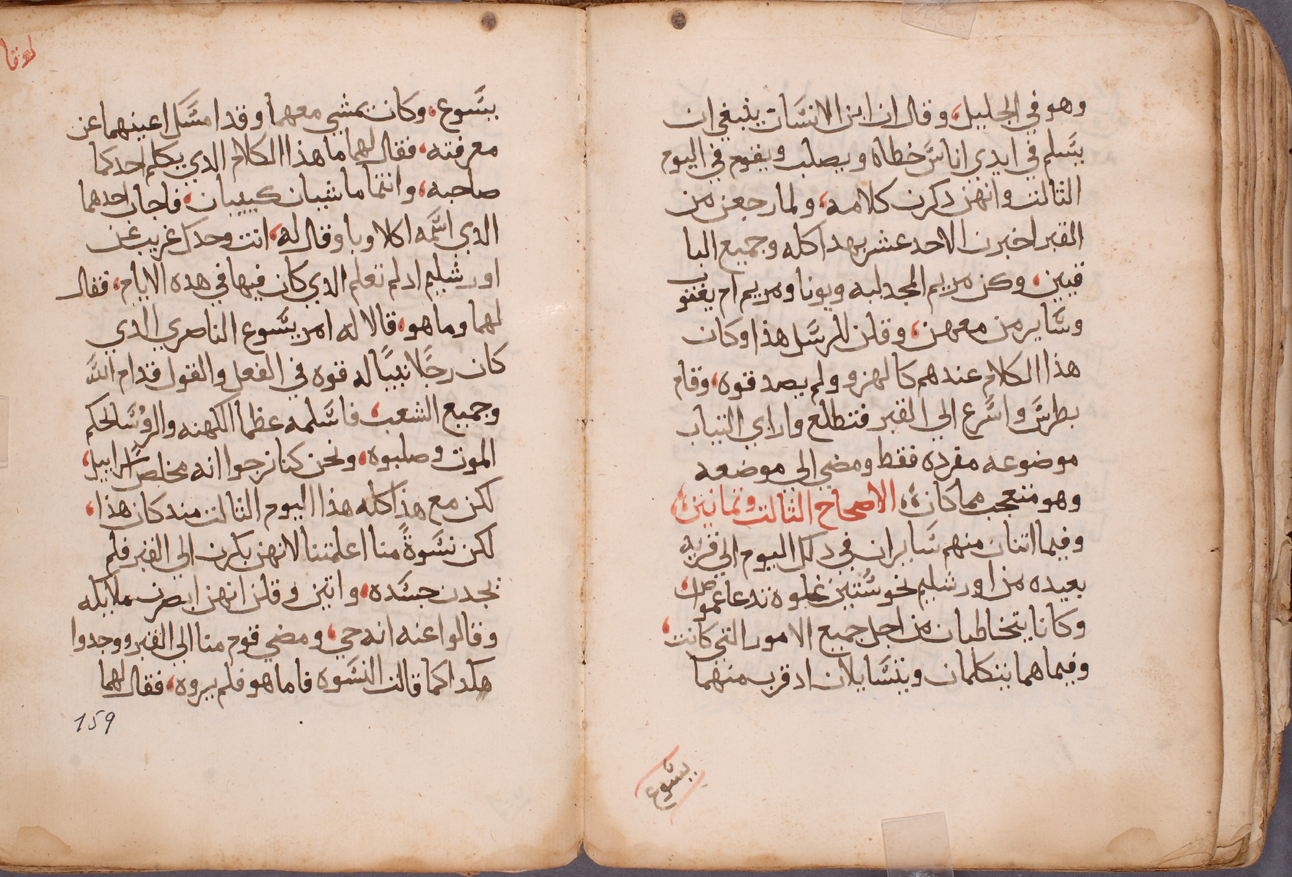 وهو في الجليل، وقال ان ابن الانسان ينبغي ان
يسلم في ايدي اناس خطاه ويصلب ويقوم في اليوم
الثالت وانهن دكرن كلامه، ولما رجعن من
القبر اخبرن الاحد عشر بهدا كله وجميع البا
قيين، وكن مريم المجدليه ويونا ومريم ام يعقوب
وساير من معهن، وقلن للرسل هذا وكان
هذا الكلام عندهم كالهزو ولم يصدقوه، وقام
بطرس واسرع الي القبر فتطلع وراي التياب
موضوعه مفرده فقط ومضي الى موضعه
وهو متعجب مما كان، الاصحاح الثالت وتمانين
وفيما اتنان منهم سايران في دلك اليوم الي قريه
بعيده من اورشليم نحو ستين غلوه تدعا عمواص
وكانا يتخاطبان من اجل جميع الامور التي كانت،
وفيما هما يتكلمان ويتسايلان اد قرب منهما
يسوع
لوقا
يسوع، وكان يمشي معهما وقد امسك اعينهما عن
معرفته، فقال لهما ما هذا الكلام الدي يكلم احدكما
صاحبه، وانتما ماشيان كييبان، فاجاب احدهما
الدي اسمه اكلاوبا وقال له، انت وحدك غريب عن
اورشليم اد لم تعلم الدي كان فيها في هده الايام، فقال
لهما وما هو، قالا له امر يسوع الناصري الدي
كان رجلا نبيا له قوه في الفعل والقول قدام الله
وجميع الشعب، فاسلمه عظما الكهنه والروسا لحكم
الموت وصلبوه، ونحن كنا نرجوا انه مخلص اسراييل،
لكن مع هذا كله هذا اليوم الثالت مند كان هذا،
لكن نسوة منا اعلمتنا لانهن بكرن الي القبر فلم
يجدن جسده، واتين وقلن انهن ابصرن ملايكه
وقالوا عنه انه حي، ومضي قوم منا الى القبر ووجدوا
هكدا كما قالت النسوه فاما هو فلم يروه، فقال لهما
159